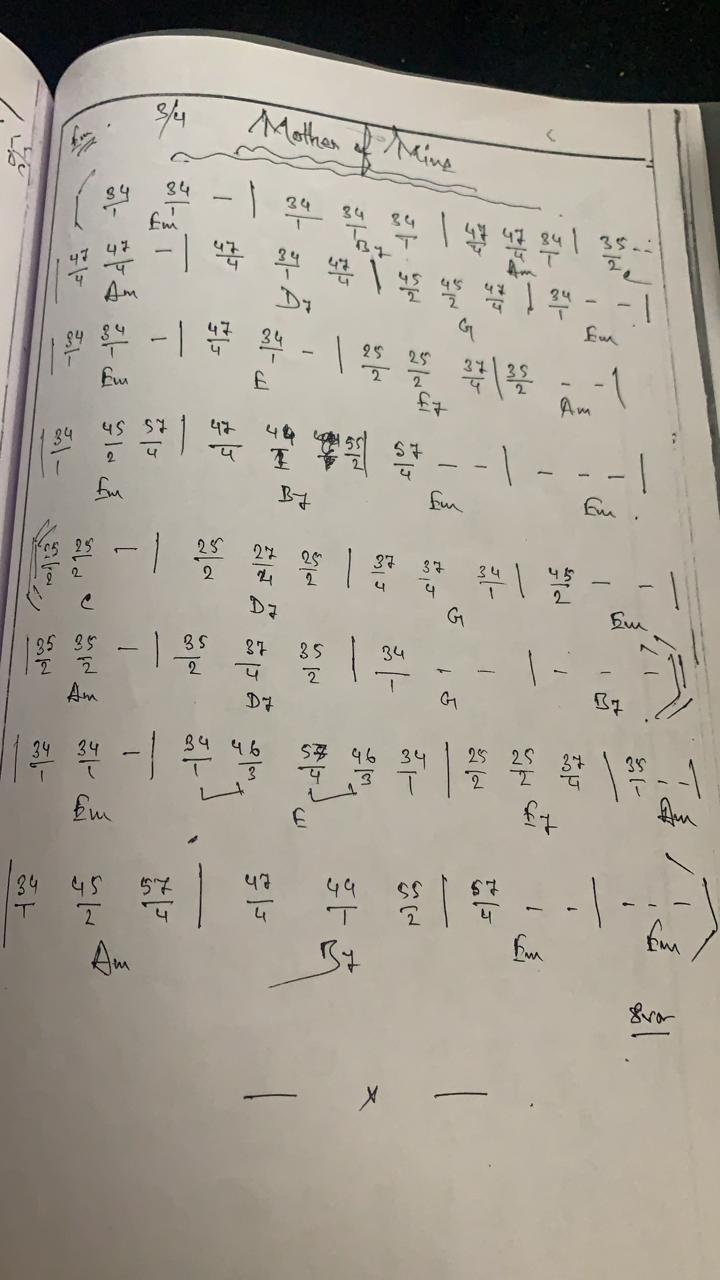 Em 3/4 Mother of Mine
( 34/1 34/1 - | 34/1 34/1 34/1 | 47/4 47/4 34/1 | 35/2 - -
Em B7 Am C
| 47/4 47/4 - | 47/4 34/1 47/4 | 45/2 45/2 47/4 | 34/1 - - |
Am D7 G Em
| 34/1 34/1 - | 47/4 34/1 - | 25/2 25/2 37/4 | 35/2 - - |
Em E E7 Am
| 34/1 45/2 57/4 | 47/4 44/1 55/2 | 57/4 - - | - - - |
Em B7 Em Em
(( 25/2 25/2 - | 25/2 27/4 25/2 | 37/4 37/4 34/1 | 45/2 - - |
C D7 G Em
| 35/2 35/2 - | 35/2 37/4 35/2 | 34/1 - - | - - - ))
Am D7 G B7
| 34/1 34/1 - | 34/1 46/3 57/4 46/3 34/1 | 25/2 25/2 37/4 | 35/1 - - |
Em E E7 Am
| 34/1 45/2 57/4 | 47/4 44/1 55/2 | 57/4 - - | - - - )
Am B7 Em Em
— x —